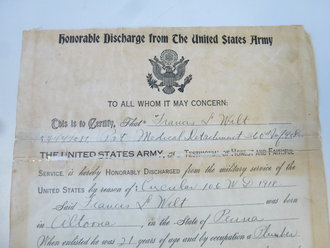 Honorable Discharge from The United States Army
TO ALL WHOM IT MAY CONCERN:
This is to Certify, That Francis L Wilt
Pvt Medical Detachment
THE UNITED STATES ARMY, as a TESTIMONIAL OF HONEST AND FAITHFUL
SERVICE, is hereby HONORABLY DISCHARGED from the military service of the
UNITED STATES by reason of Circular 106 W D 1918
Said Francis L Wilt was born
in Altoona in the State of Penna
When enlisted he was 21 years of age and by occupation a Plumber